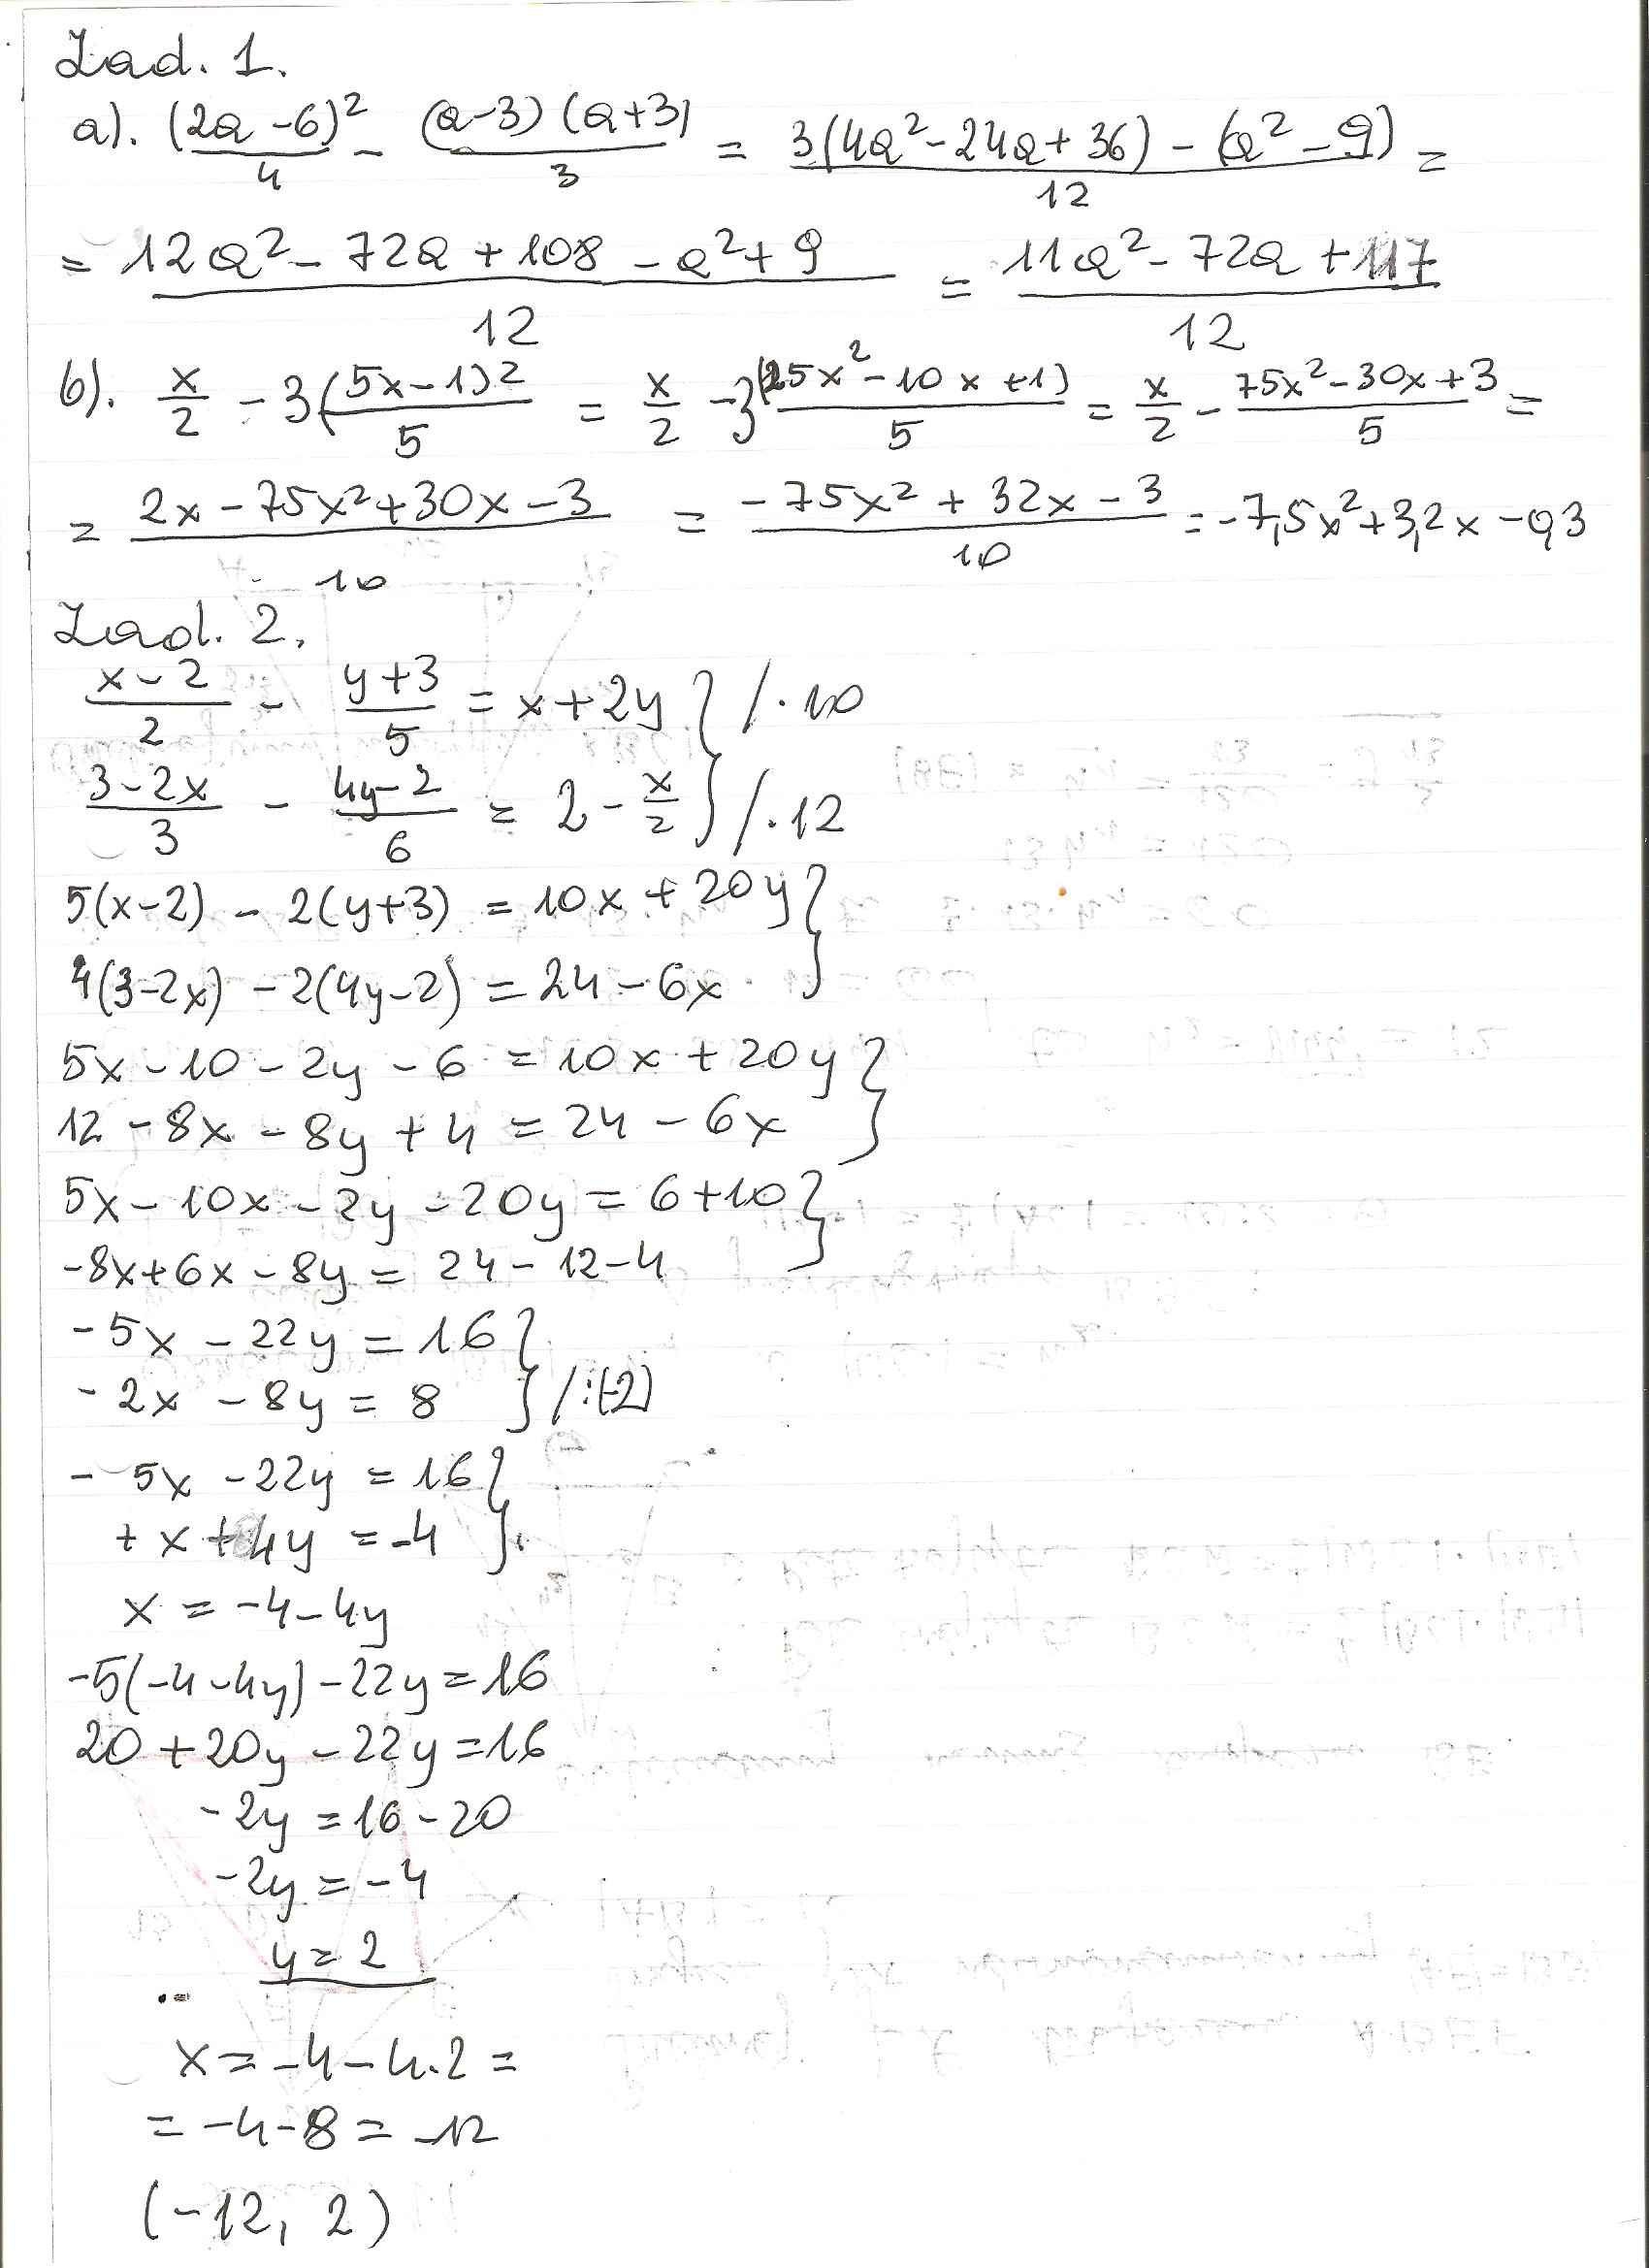 Zad. 1.
a). (2a-6)²/4 - (a-3)(a+3)/3 = 3(4a²-24a+36)-(a²-9)/12 =
= 12a²-72a+108-a²+9/12 = 11a²-72a+117/12
b). x/2 - 3(5x-1)²/5 = x/2 - 3(25x²-10x+1)/5 = x/2 - 75x²-30x+3/5 =
= 2x-75x²+30x-3/10 = -75x²+32x-3/10 = -7,5x²+3,2x-0,3
Zad. 2.
x-2/2 - y+3/5 = x+2y } /·10
3-2x/3 - 4y-2/6 = 2 - x/2 } /·12
5(x-2) - 2(y+3) = 10x + 20y }
4(3-2x) - 2(4y-2) = 24 - 6x }
5x - 10 - 2y - 6 = 10x + 20y }
12 - 8x - 8y + 4 = 24 - 6x }
5x - 10x - 2y - 20y = 6+10 }
-8x+6x - 8y = 24 - 12 - 4 }
-5x - 22y = 16 }
-2x - 8y = 8 } /:(-2)
- 5x - 22y = 16 }
+ x + 4y = -4 }
x = -4 - 4y
-5(-4-4y) - 22y = 16
20 + 20y - 22y = 16
-2y = 16 - 20
-2y = -4
y = 2
x = -4 - 4·2 =
= -4-8 = -12
(-12, 2)